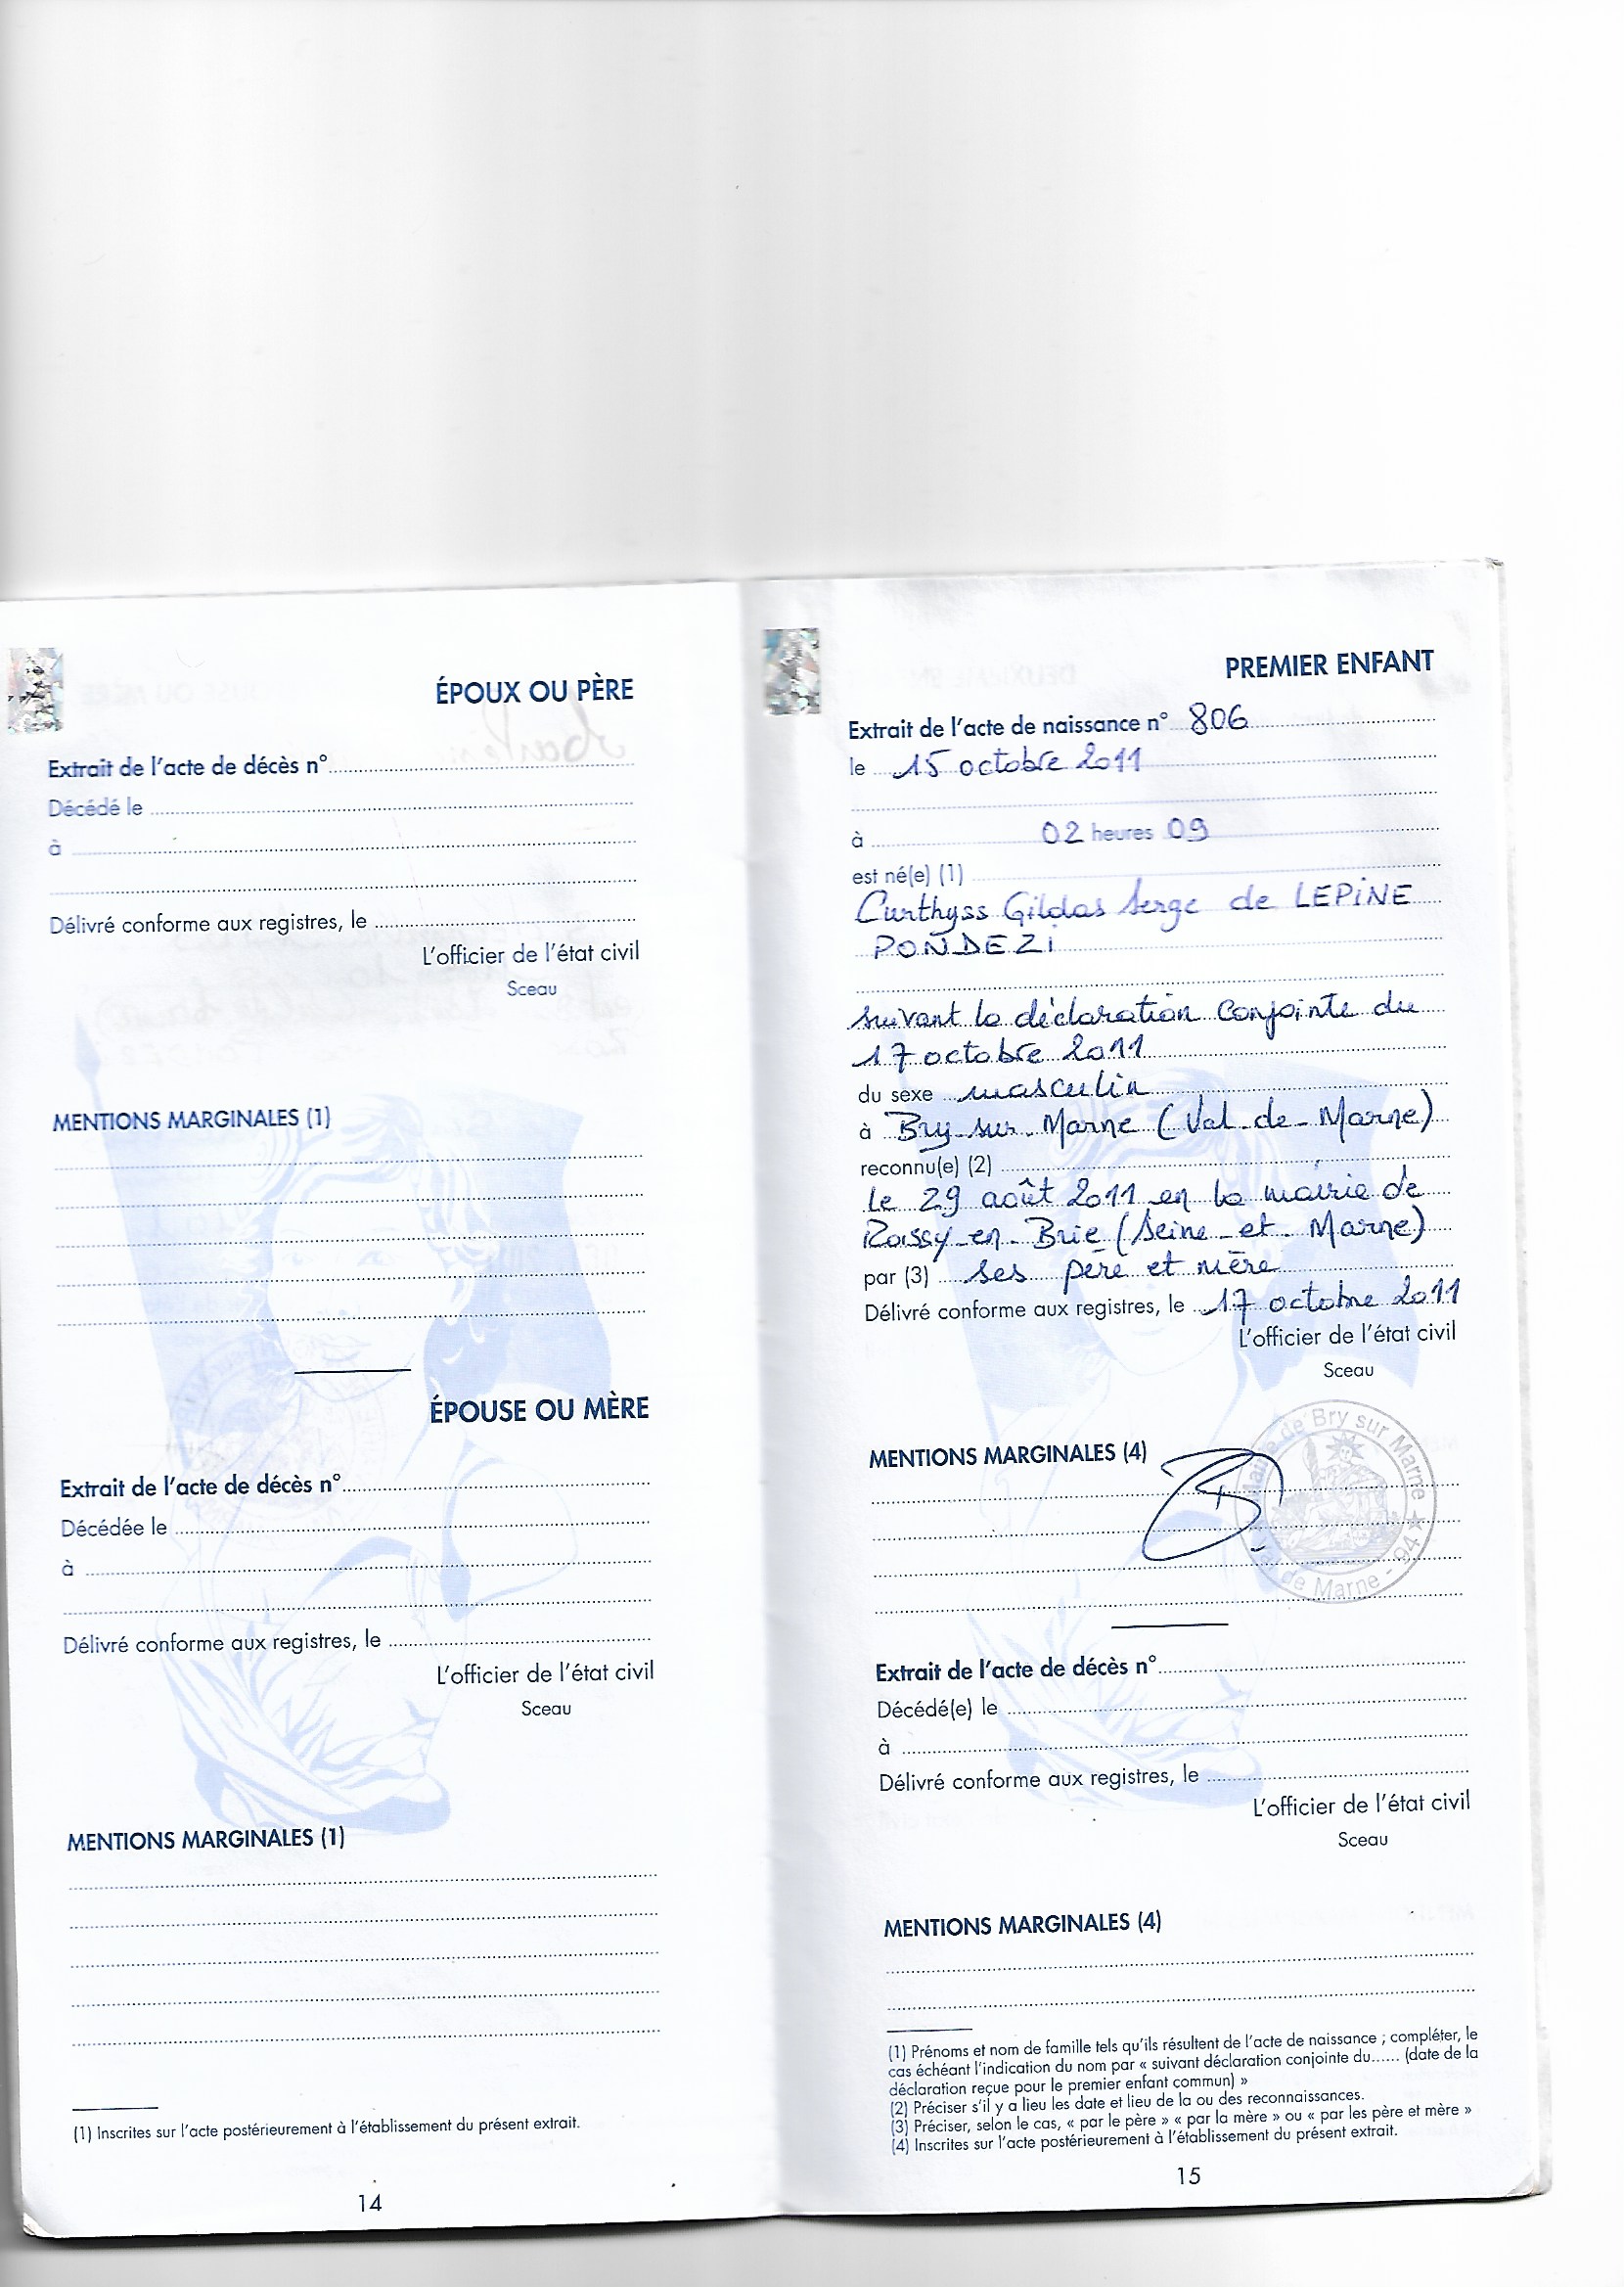 ÉPOUX OU PÈRE
Extrait de l'acte de décès n°
Décédé le
à
Délivré conforme aux registres, le
L'officier de l'état civil
Sceau
MENTIONS MARGINALES (1)
ÉPOUSE OU MÈRE
Extrait de l'acte de décès n°
Décédée le
à
Délivré conforme aux registres, le
L'officier de l'état civil
Sceau
MENTIONS MARGINALES (1)
(1) Inscrites sur l'acte postérieurement à l'établissement du présent extrait.
14
PREMIER ENFANT
Extrait de l'acte de naissance n° 806
le 15 octobre 2011
à 02 heures 09
est né(e) (1)
Curthyss Gildas Serge de LEPINE
PONDEZI
suivant la déclaration conjointe du
17 octobre 2011
du sexe masculin
à Bry-sur-Marne (Val-de-Marne)
reconnu(e) (2)
le 29 août 2011 en la mairie de
Roissy-en-Brie (Seine-et-Marne)
par (3) ses père et mère
Délivré conforme aux registres, le 17 octobre 2011
L'officier de l'état civil
Sceau
Mairie de Bry sur Marne ★
Val de Marne - 94
MENTIONS MARGINALES (4)
Extrait de l'acte de décès n°
Décédé(e) le
à
Délivré conforme aux registres, le
L'officier de l'état civil
Sceau
MENTIONS MARGINALES (4)
(1) Prénoms et nom de famille tels qu'ils résultent de l'acte de naissance ; compléter, le
cas échéant l'indication du nom par « suivant déclaration conjointe du...... (date de la
déclaration reçue pour le premier enfant commun) »
(2) Préciser s'il y a lieu les date et lieu de la ou des reconnaissances.
(3) Préciser, selon le cas, « par le père » « par la mère » ou « par les père et mère »
(4) Inscrites sur l'acte postérieurement à l'établissement du présent extrait.
15